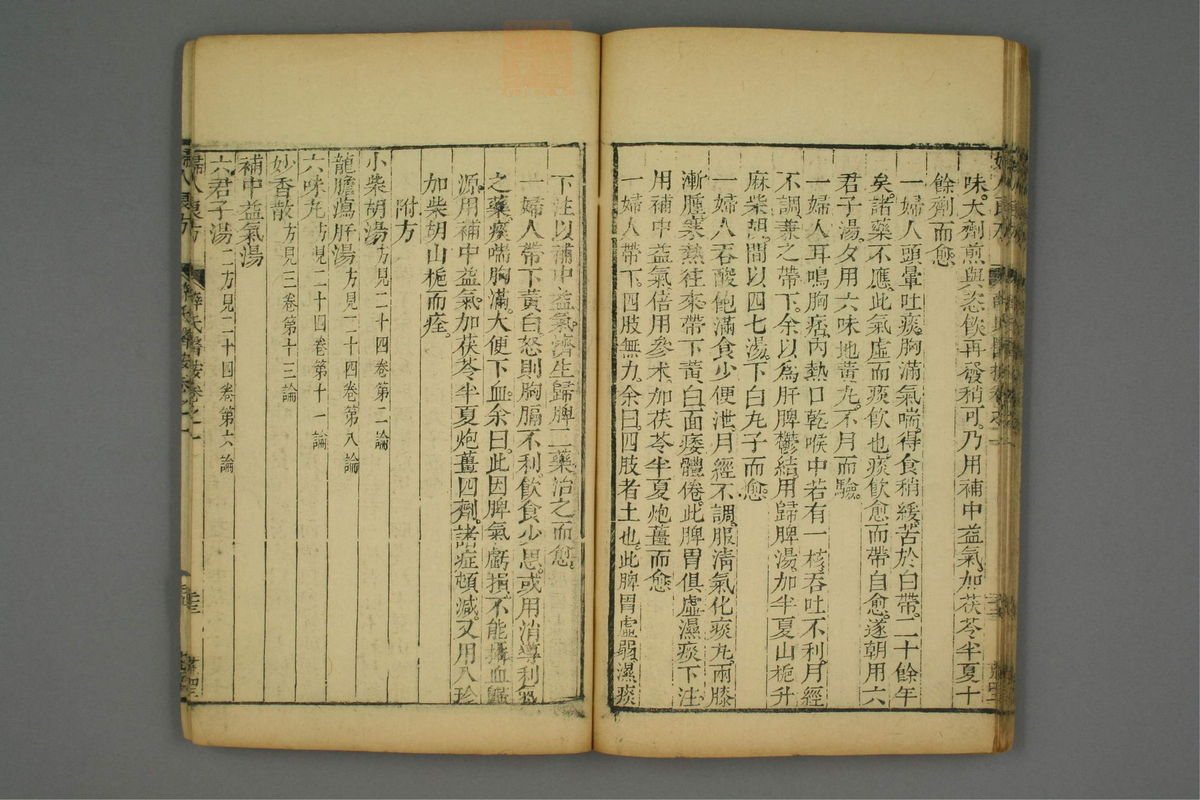 味大劑煎與恣飲再發稍可乃用補中益氣加茯苓半夏十
餘劑而愈
一婦人頭暈吐痰胸滿氣喘得食稍緩苦於白帶二十餘年
矣諸藥不應此氣虛而痰飲也痰飲愈而帶自愈遂朝用六
君子湯夕用六味地黃丸不月而驗
一婦人耳鳴胸痞內熱口乾喉中若有一核吞吐不利月經
不調兼之帶下余以為肝脾鬱結用歸脾湯加半夏山梔升
麻柴胡間以四七湯下白丸子而愈
一婦人吞酸飽滿食少便泄月經不調服淸氣化痰丸兩膝
漸腫寒熱往來帶下黃白面痿體倦此脾胃俱虛濕痰下注
用補中益氣倍用參朮加茯苓半夏炮薑而愈
一婦人帶下四肢無力余曰四肢者土也此脾胃虛弱濕痰
下注以補中益氣濟生歸脾二藥治之而愈
一婦人帶下黃白怒則胸膈不利飲食少思或用消導利氣
之藥痰喘胸滿大便下血余曰此因脾氣虧損不能攝血歸
源用補中益氣加茯苓半夏炮薑四劑諸症頓減又用八珍
加柴胡山梔而痊
附方
小柴胡湯方見二十四卷第二論
龍膽瀉肝湯方見二十四卷第八論
六味丸方見二十四卷第十一論
妙香散方見三卷第十三論
補中益氣湯
六君子湯二方見二十四卷第六論
婦人良方 薛氏醫按卷之一